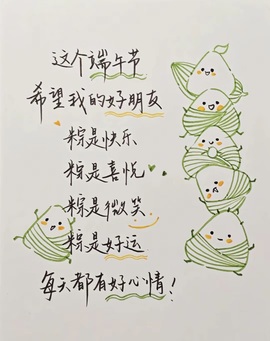 这个端午节
希望我的好朋友
粽是快乐
粽是喜悦
粽是微笑
粽是好运
每天都有好心情！